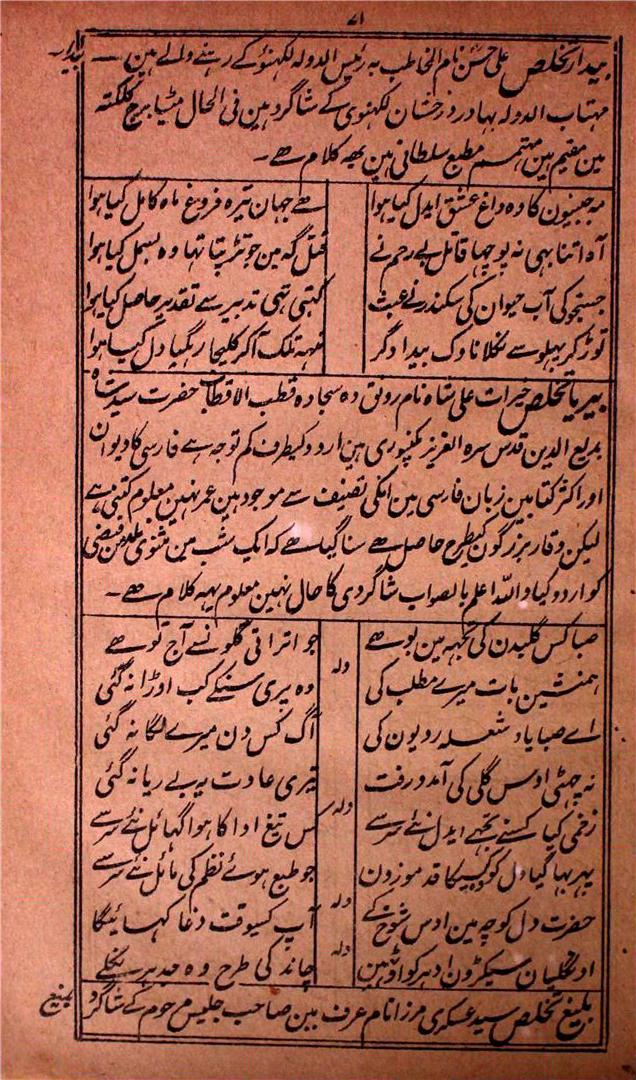 ۷۱
بیدار تخلص علی حسن نام المخاطب بہ رئیس الدولہ لکھنؤ کے رہنے والے ہین — بیدار
مہتاب الدولہ بہادر درخشان لکھنوی کے شاگرد ہین فی الحال مٹیا برج کلکتہ
مین مقیم ہین مہتمم مطبع سلطانی ہین یھہ کلام ھے۔
مہ جبینون کا وہ داغ عشق ایدل کیا ہوا ھے جہان تیرہ فروغ ماہ کامل کیا ہوا
آہ اتنا بہی نہ پوچہا قاتل بے رحم نے قتل گہ مین جو تڑپتا تہا وہ بسمل کیا ہوا
جستجو کی آب حیوان کی سکندر نے عبث کہتی تہی تدبیر سے تقدیر حاصل کیا ہوا
توڑ کر پہلو سے نکلا ناوک بیدادگر منہہ تلک آکر کلیجا رہگیا دل کیا ہوا
بیریا تخلص خیرات علی شاہ نام رونق دہ سجادہ قطب الاقطاب حضرت سید شاہ
بدیع الدین قدس سرہ العزیز مکنپوری ہین اردو کیطرف کم توجہ ہے فارسی کا دیوان
اور اکثر کتابین زبان فارسی مین انکی تصنیف سے موجود ہین عمر نہین معلوم کتنی ہے
لیکن وقار بزرگون کیطرح حاصل ھے سنا گیا ھے کہ ایک شب مین مثنوی فیضی
کو اردو کیا واللہ اعلم بالصواب شاگردی کا حال نہین معلوم یہہ کلام ھے۔
صبا کس گلبدن کی تجہہ مین بو ھے جو اتراتی گلونسے آج تو ھے
ولہ
ہمنشین بات میرے مطلب کی وہ پری سنکے کب اوڑا نہ گئی
اے صبا یاد شعلہ رویون کی آگ کس دن میرے لگا نہ گئی
نہ چہٹی اوس گلی کی آمد و رفت تیری عادت یہ بے ریا نہ گئی
ولہ
زخمی کیا کسنے تجہے ایدل نئے سر سے کس تیغ ادا کا ہوا گہائل نئے سر سے
پہر بہا گیا دل کو کسیکا قد موزون جو طبع ہوئے نظم کی مائل نئے سر سے
ولہ
حضرت دل کوچہ مین اوس شوخ کے آپ کسیوقت دغا کہائیگا
ولہ
اونگلیان سیکڑون ادہر کو اوٹہین چاند کی طرح وہ جدہر نکلے
بلیغ تخلص سید عسکری مرزا نام عرف بین صاحب جلیس مرحوم کے شاگرد بلیغ